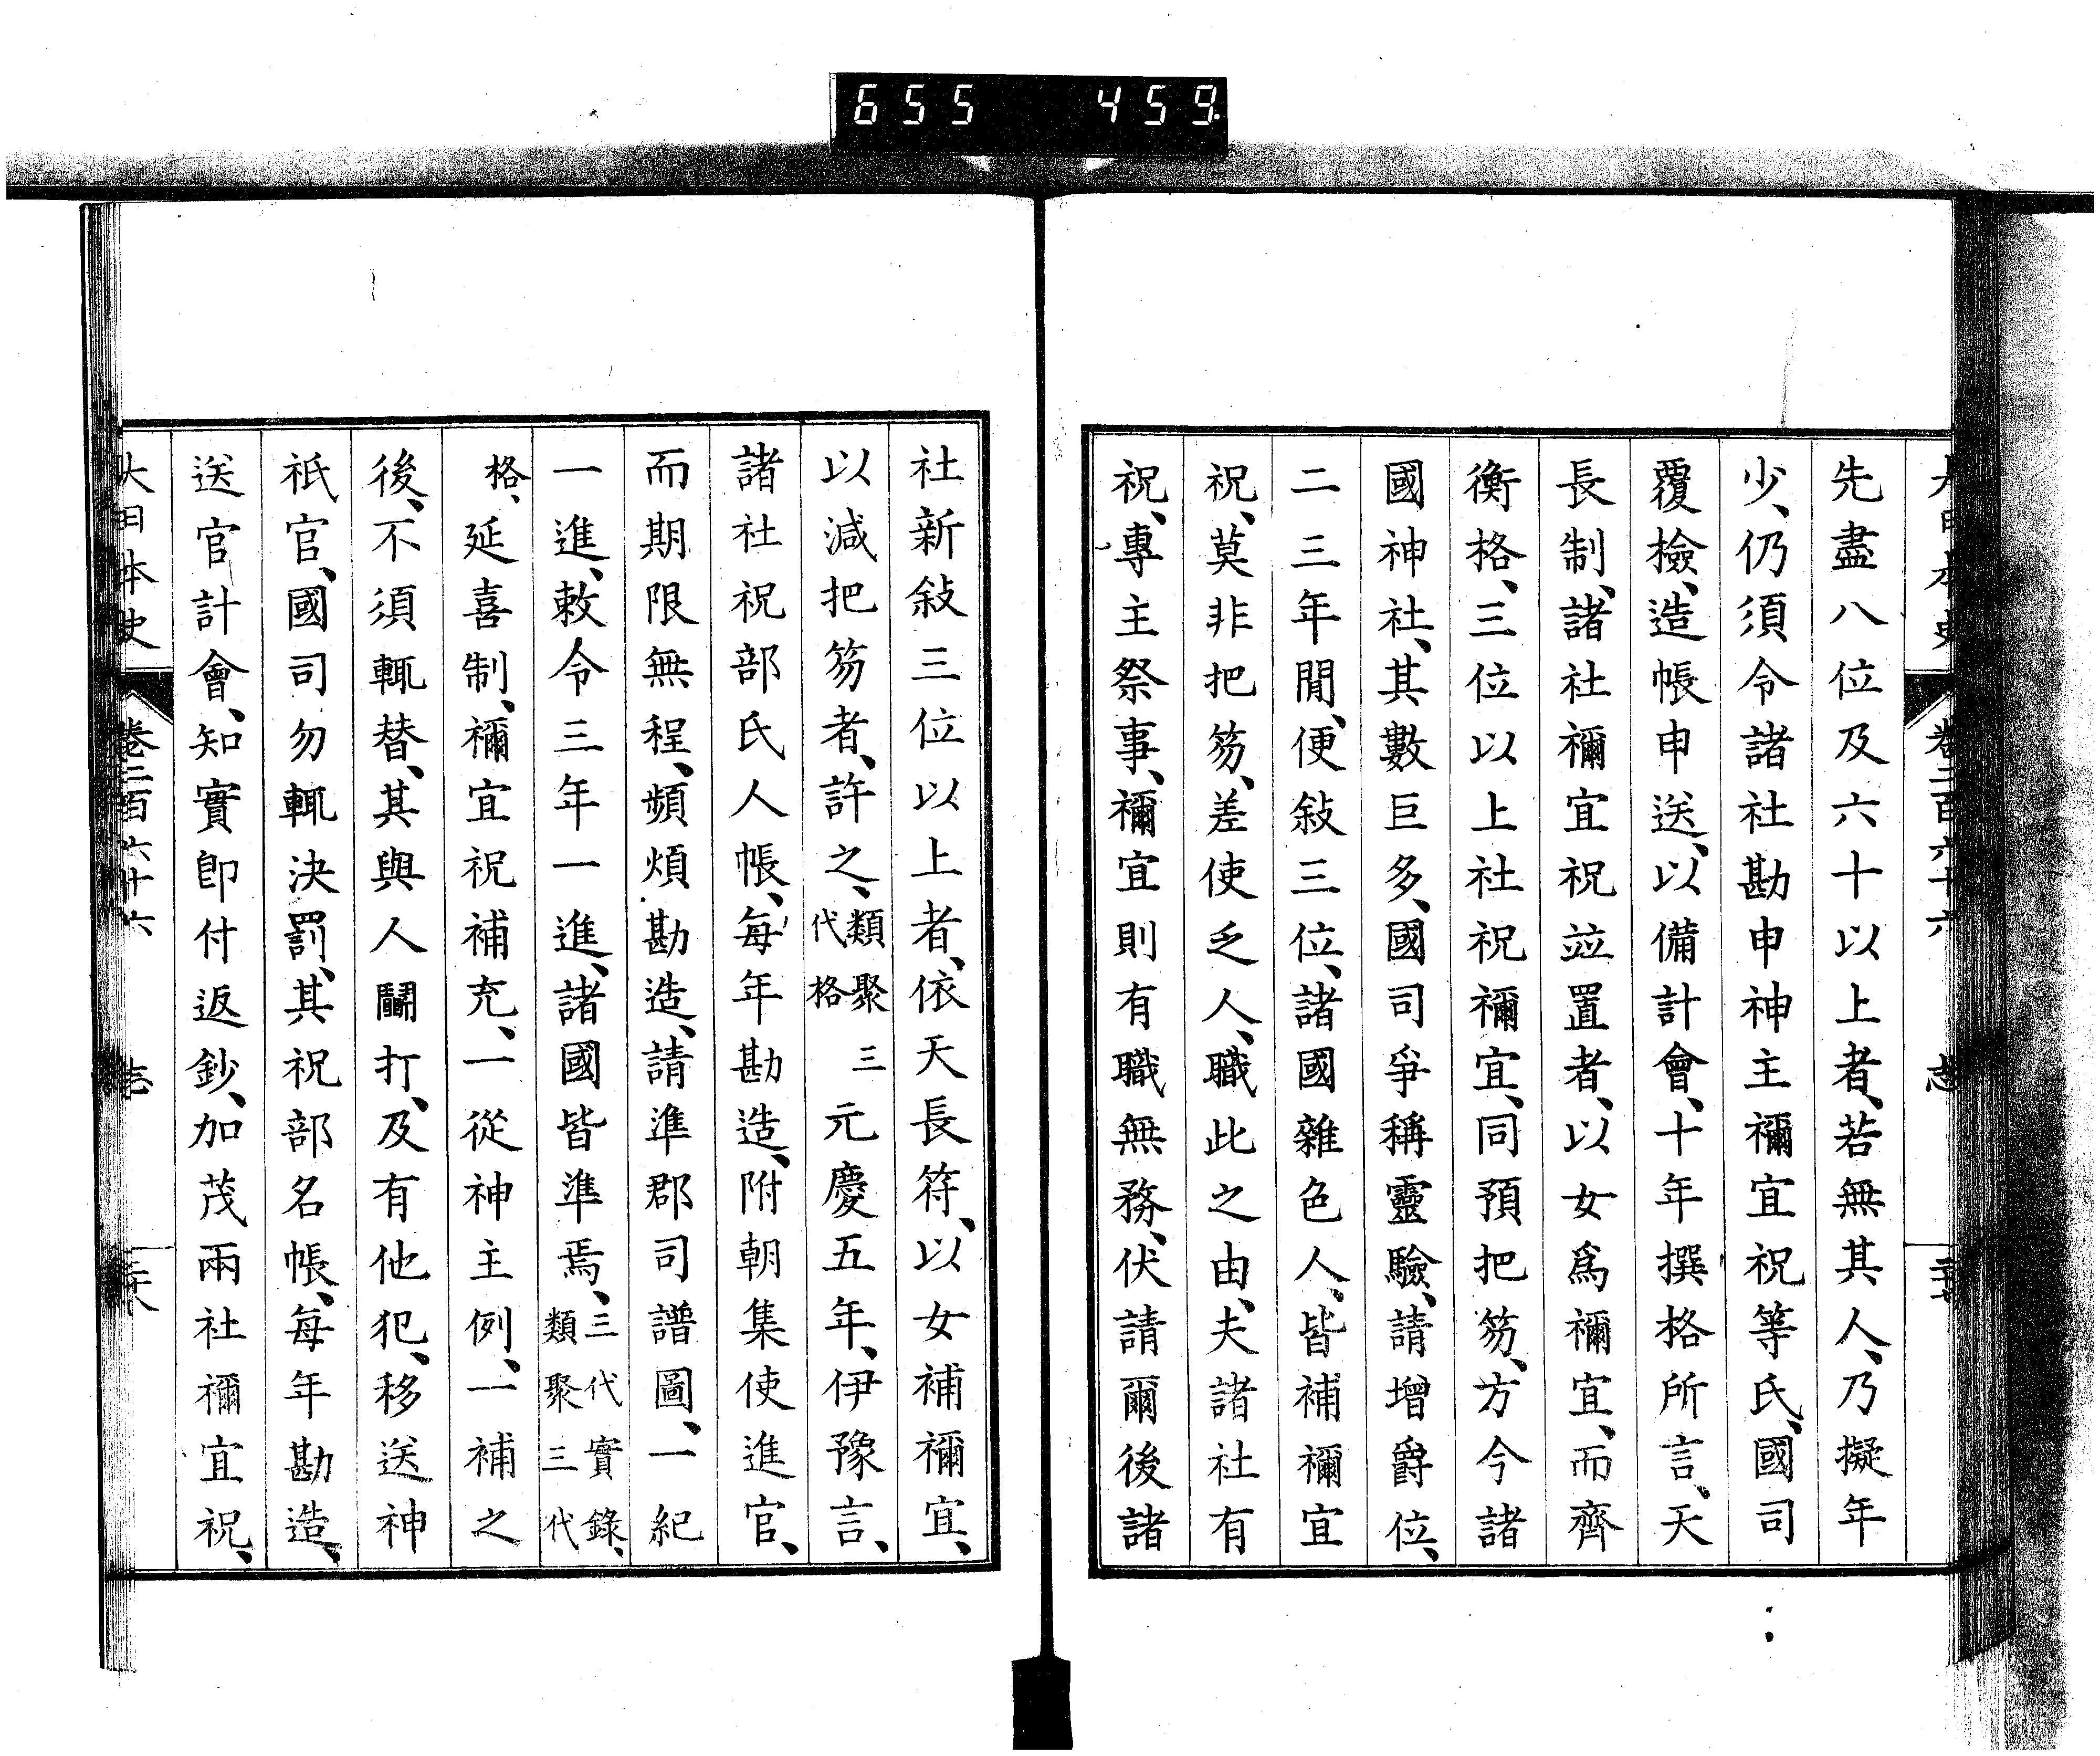 655 459
大日本史 卷二百六十六 志 二十七
先盡八位及六十以上者、若無其人、乃擬年
少、仍須令諸社勘申神主禰宜祝等氏、國司
覆檢、造帳申送、以備計會、十年撰格所言、天
長制、諸社禰宜祝竝置者、以女爲禰宜、而齊
衡格、三位以上社祝禰宜、同預把笏、方今諸
國神社、其數巨多、國司爭稱靈驗、請增爵位、
二三年閒、便敍三位、諸國雜色人、皆補禰宜
祝、莫非把笏、差使乏人、職此之由、夫諸社有
祝、專主祭事、禰宜則有職無務、伏請爾後諸
社新敍三位以上者、依天長符、以女補禰宜、
以減把笏者、許之、類聚三代格 元慶五年、伊豫言、
諸社祝部氏人帳、每年勘造、附朝集使進官、
而期限無程、頻煩勘造、請準郡司譜圖、一紀
一進、敕令三年一進、諸國皆準焉、三代實錄、類聚三代
格、延喜制、禰宜祝補充、一從神主例、一補之
後、不須輒替、其與人鬬打、及有他犯、移送神
祇官、國司勿輒決罰、其祝部名帳、每年勘造、
送官計會、知實卽付返鈔、加茂兩社禰宜祝、
大日本史 卷二百六十六 志 二十八